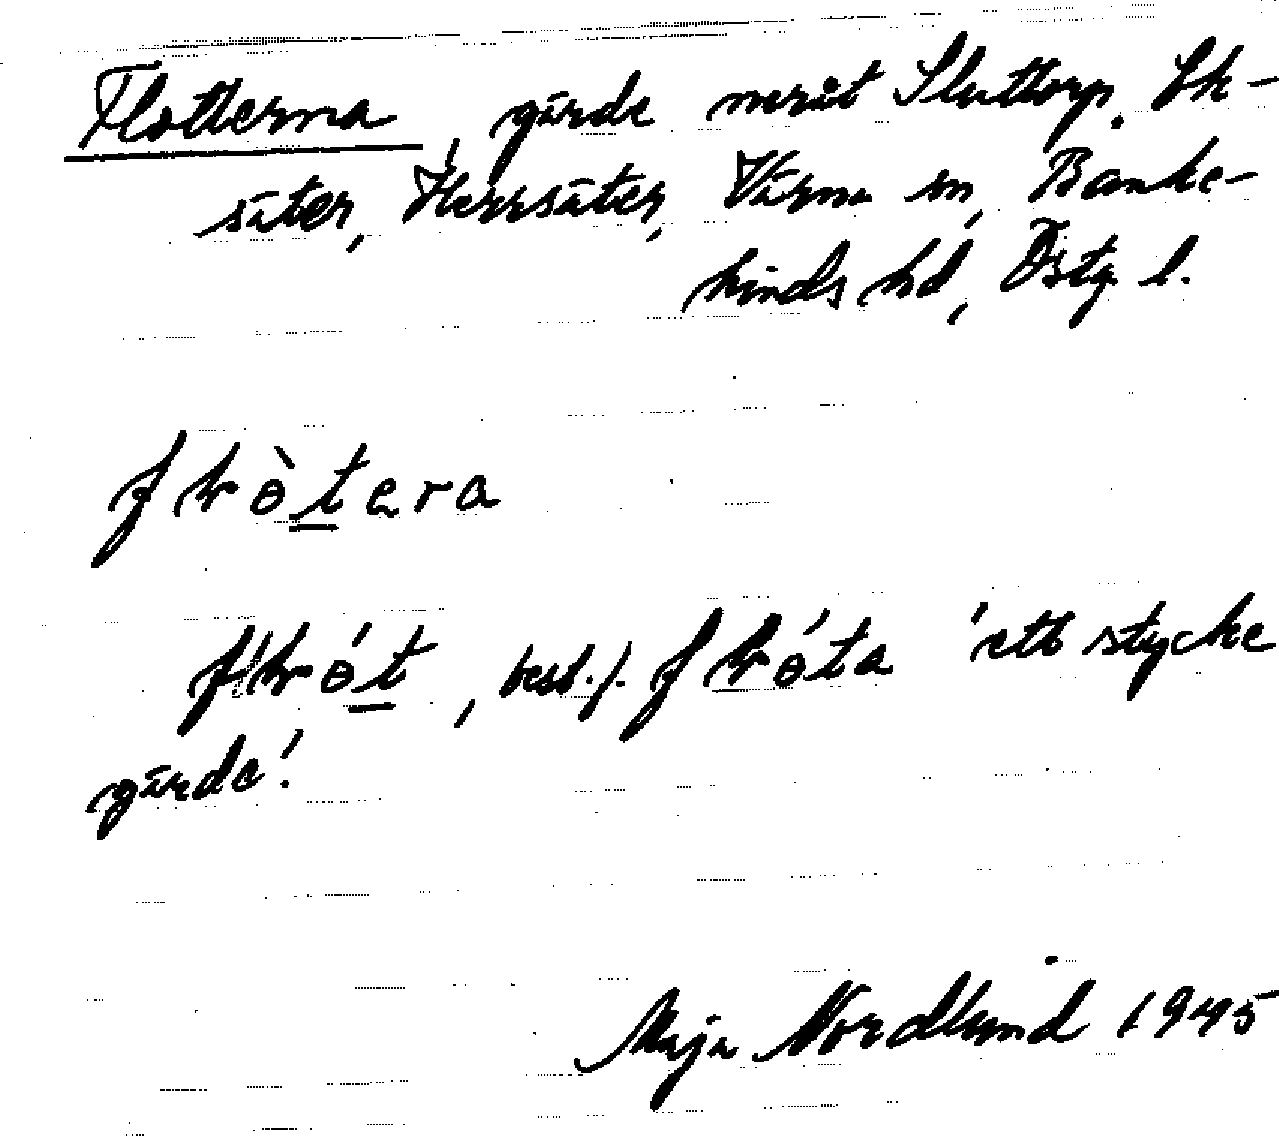 Flotterna, gärde neråt Sluttorp. Ek-
säter, Herrsäter, Värna sn, Banke-
kinds hd, Östg. l.
flɵ̀tera
flɵ́t, best. f. flɵ́ta 'ett stycke
gärde'.
Maja Nordlund 1945